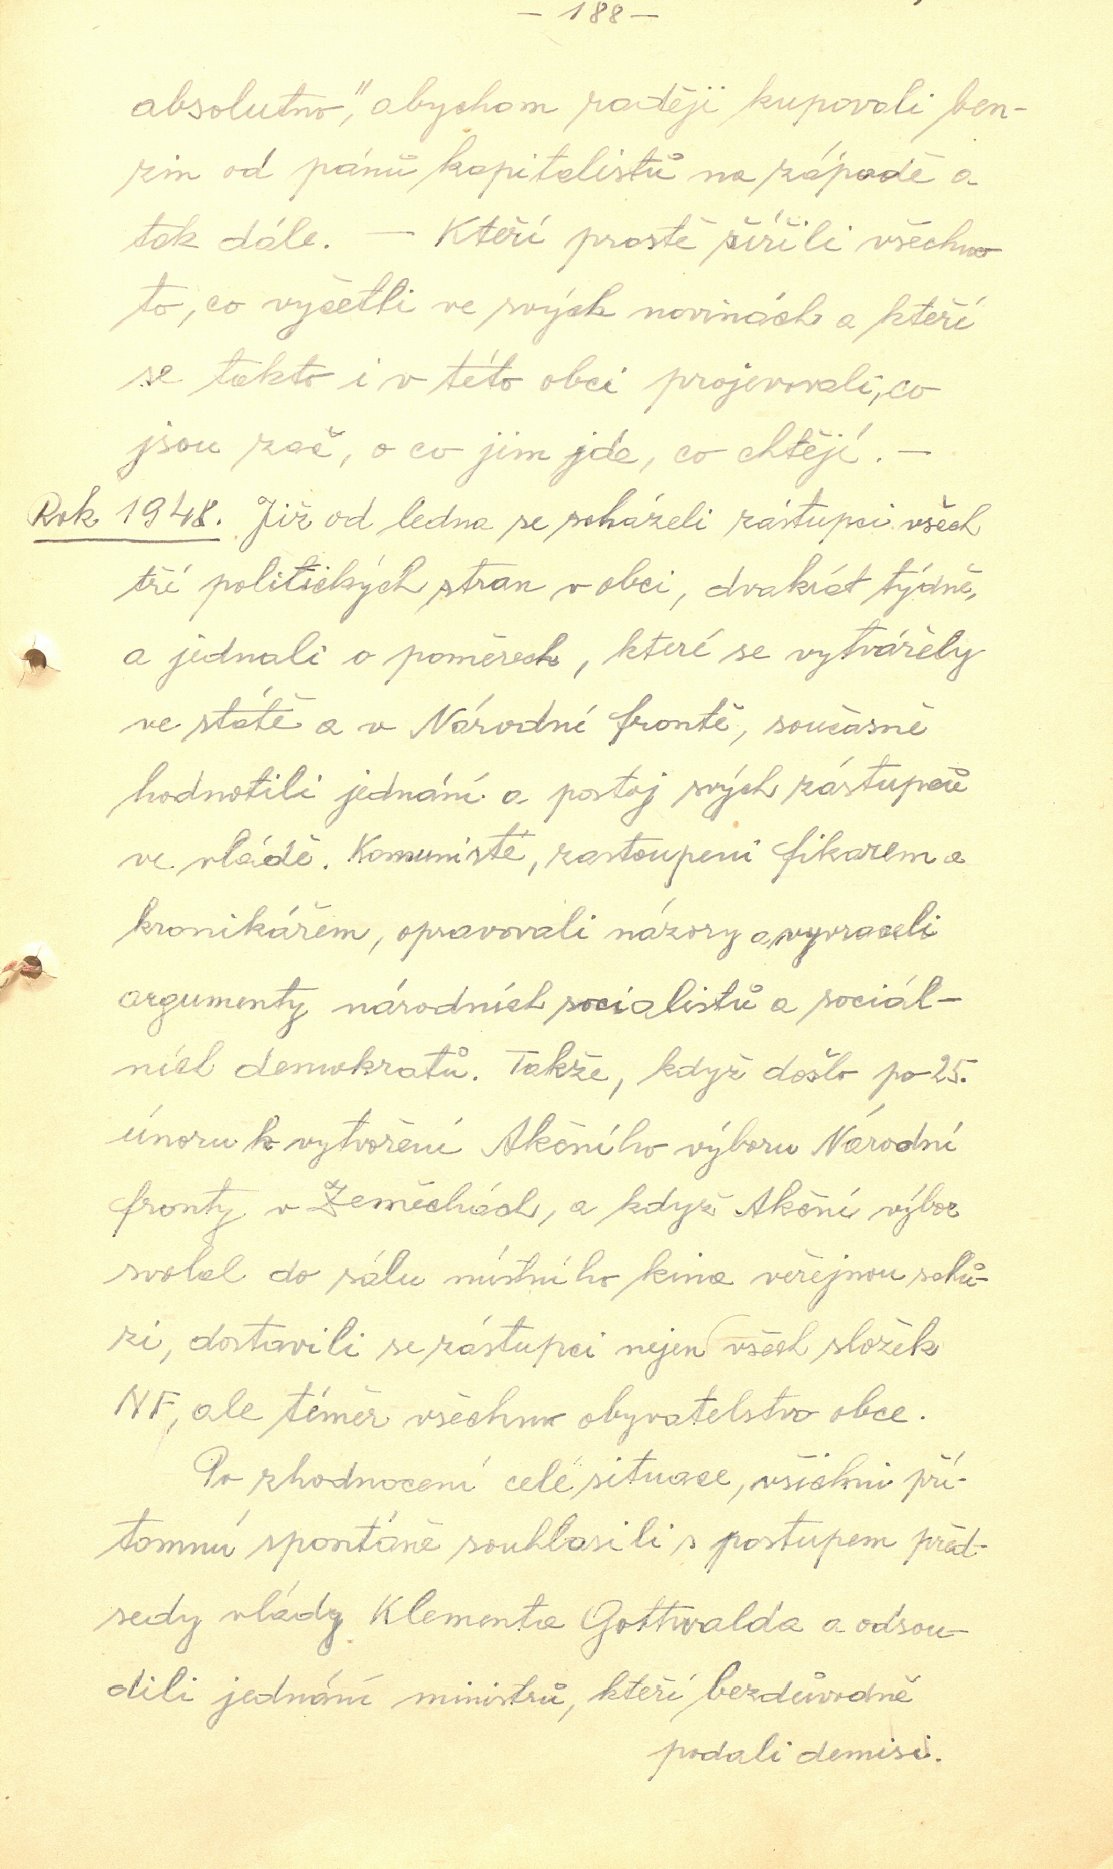 – 188 –
absolutno," abychom raději kupovali ben-
zin od pánů kapitalistů na západě a
tak dále. – Kteří prostě šířili všechno
to, co vyčetli ve svých novinách a kteří
se takto i v této obci projevovali, co
jsou zač, o co jim jde, co chtějí. –
Rok 1948. Již od ledna se scházeli zástupci všech
tří politických stran v obci, dvakrát týdně,
a jednali o poměrech, které se vytvářely
ve státě a v Národní frontě, současně
hodnotili jednání a postoj svých zástupců
ve vládě. Komunisté, zastoupeni Fikarem a
kronikářem, opravovali názory a vyvraceli
argumenty národních socialistů a sociál-
ních demokratů. Takže, když došlo po 25.
únoru k vytvoření Akčního výboru Národní
fronty v Zeměchách, a když Akční výbor
svolal do sálu místního kina veřejnou schů-
zi, dostavili se zástupci nejen všech složek
NF, ale téměř všechno obyvatelstvo obce.
Po zhodnocení celé situace, všichni pří-
tomní spontáně souhlasili s postupem před-
sedy vlády Klementa Gottwalda a odsou-
dili jednání ministrů, kteří bezdůvodně
podali demisi.